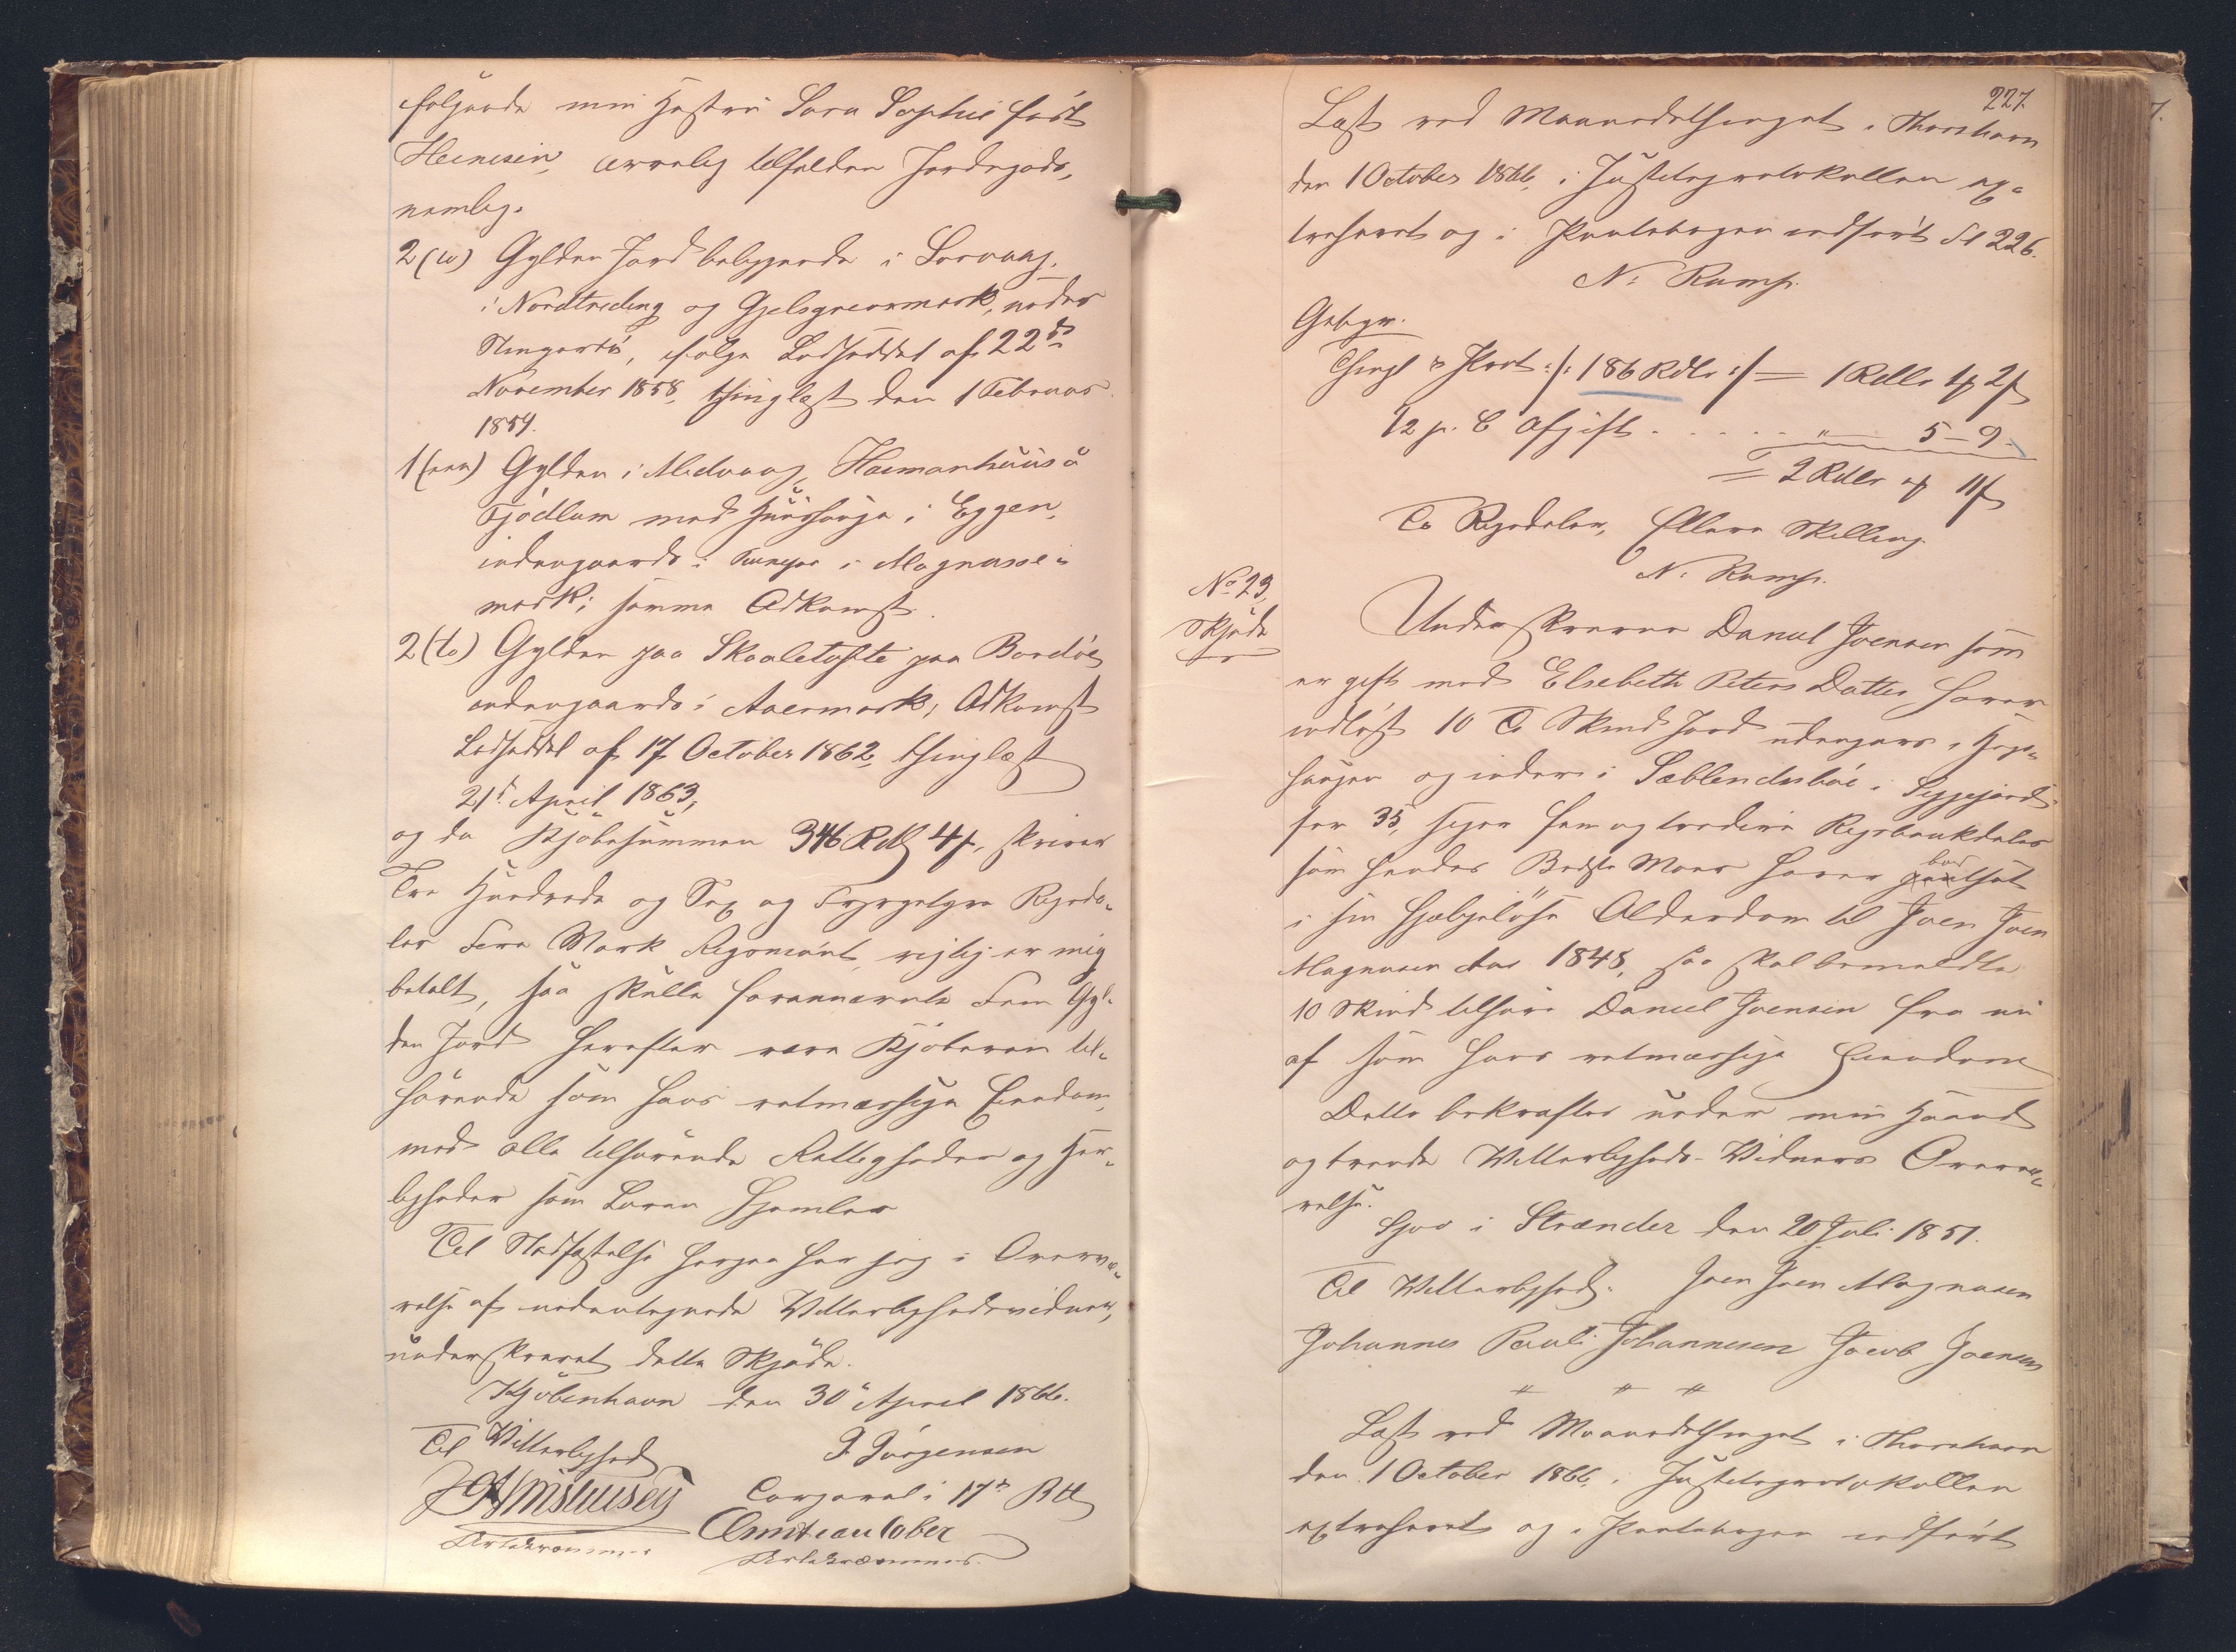 følgende min Hustru Sara Sophie født
Heinesen, arvelig tilfalden Jordegods,
nemlig.
2 (to) Gylden Jord beliggende i Sorvaag,
i Nordtreding og Gjelsgreormark, under
, ifølge Lodseddel af 22de
November 1858, thinglæst den 1 Februar
1859.
1 (een) Gylden i Midvaag,
med i Eggen,
indengaards i i Magnusse-
mark; samme Adkomst.
2 (to) Gylden paa Skaaletofte paa Bordöe
indengaards i Aaermark; Adkomst
Lodseddel af 17 October 1862, thinglæst
21d April 1863,
og da Kjöbesummen 346 Rdl 4 , skriver
Tre Hundrede og Sex og Fyrgetyve Rigsda-
ler Fire Mark Rigsmönt, rigtig er mig
betalt, saa skulle forannævnte Fem Gyl-
den Jord herefter være Kjöberen til-
hörende som hans retmæssige Eiendom,
med alle tilhörende Rettigheder og Her-
ligheder som Loven hjemler
Til Stadfæstelse herpaa har jeg i Overvæ-
relse af undertegnede Vitterlighedsvidner,
underskrevet dette Skjöde.
Kjöbenhavn den 30d April 1866.
Til Vitterlighed J. Jörgensen
Corporal i 17d Btl
227.
Læst ved Maanedsthinget i Thorshavn
den 1 October 1866, i Justitsprotokollen ex-
traheret og i Pantebogen indført Fol 226.
N. Rump.
Gebyr.
Thingl & Port :/: 186 Rdlr :/: = 1 Rdlr 4 2
1/2 p. C Afgift . . . . . " 5 - 9.
= 2 Rdlr " 11
To Rigsdaler, Elleve Skilling
N. Rump.
No 23,
Skjøde
Underskrevne Daniel Joensen som
er gift med Elsebeth Peters Datter haver
indløst 10 Ti Skind Jord udengaar i
haugen og inder i Sæblendsböe i Siggejord
for 35, siger fem og tredive Rigsbankdaler
som hendes Bedste Moer haver bortsat
i sin hjælpelöse Alderdom til Joen Joen
Magnusen Aar 1848, saa skal bemeldte
10 Skind tilhøre Daniel Joensen fra nu
af som hans retmæssige Eiendom
Dette bekræftes under min Haand
og trende Vitterligheds-Vidners Overvæ-
relse.
Gjov i Strænder den 20 Juli 1851.
Til Vitterlighed: Joen Joen Magnusen
Johannes Pauli Johannesen Jacob Joensen
Læst ved Maanedsthinget i Thorshavn
den 1 October 1866, i Justitsprotokollen
extraheret og i Pantebogen indført